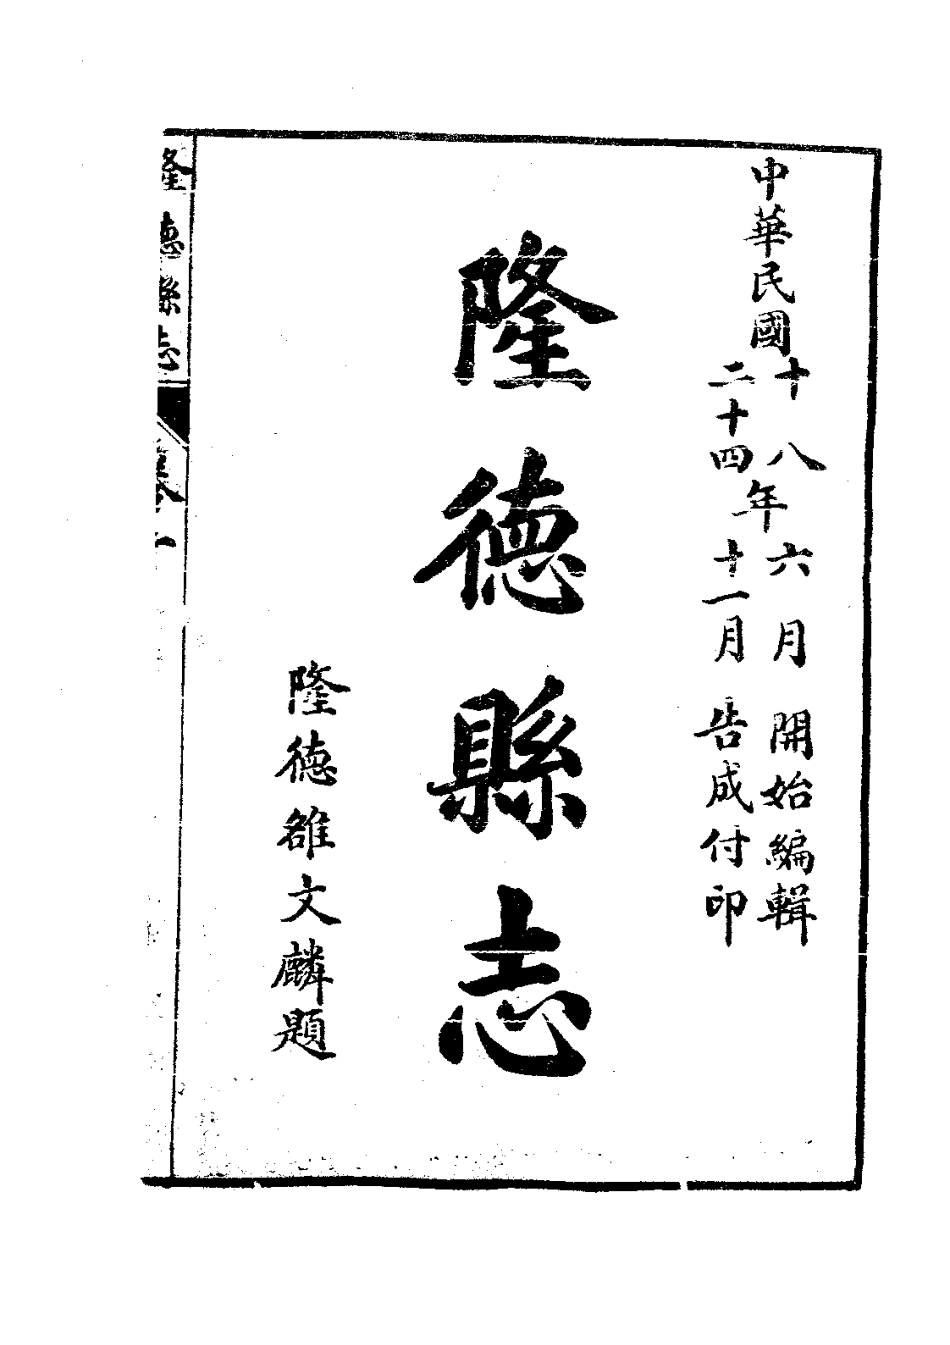 中華民國
十八年六月開始編輯
二十四年十一月告成付印
隆德縣志
隆德雒文麟題
隆德縣志